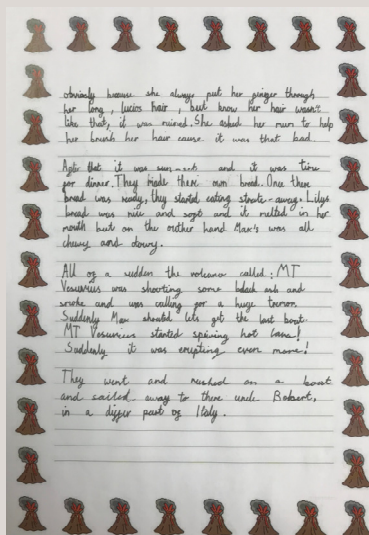 obviously because she always put her ginger through
her long, lucios hair, but know her hair wasn't
like that, it was ruined. She asked her mum to help
her brush her hair cause it was that bad.
After that it was and it was time
for dinner. They made there own bread. Once there
bread was ready, they started eating strate-away. Lilys
bread was nice and soft and it melted in her
mouth but on the other hand Max's was all
chewy and dowy.
All of a sudden the volcano called: MT
Vesuvius was shooting some black ash and
smoke and was calling for a huge tremor.
Suddenly Max shouted lets get the last boat.
MT Vesuvius started spewing hot lava!
Suddenly it was erupting even more!
They went and rushed on a boat
and sailed away to there uncle Robert,
in a differ part of Italy.